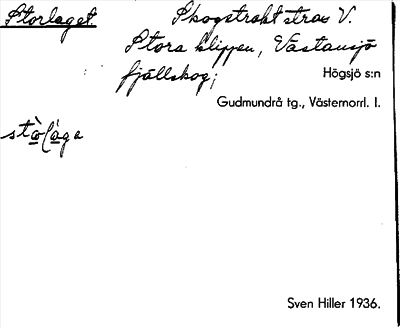 Storlaget. Skogstrakt strax V.
Stora klippen, Västansjö
fjällskog; Högsjö s:n
Gudmundrå tg., Västernorrl. l.
Sven Hiller 1936.